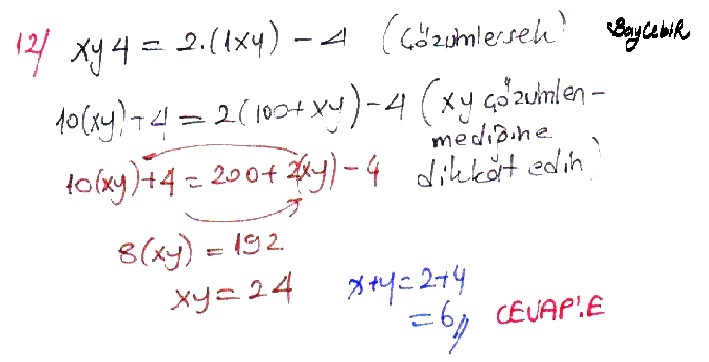 12/ xy4 = 2.(1xy) - 4 (Çözümlersek) BayCebiR
10(xy)+4 = 2(100+xy)-4 (xy çözümlen-
mediğine
10(xy)+4 = 200+2(xy)-4 dikkat edin)
8(xy) = 192
xy = 24 x+y=2+4
=6// CEVAP:E